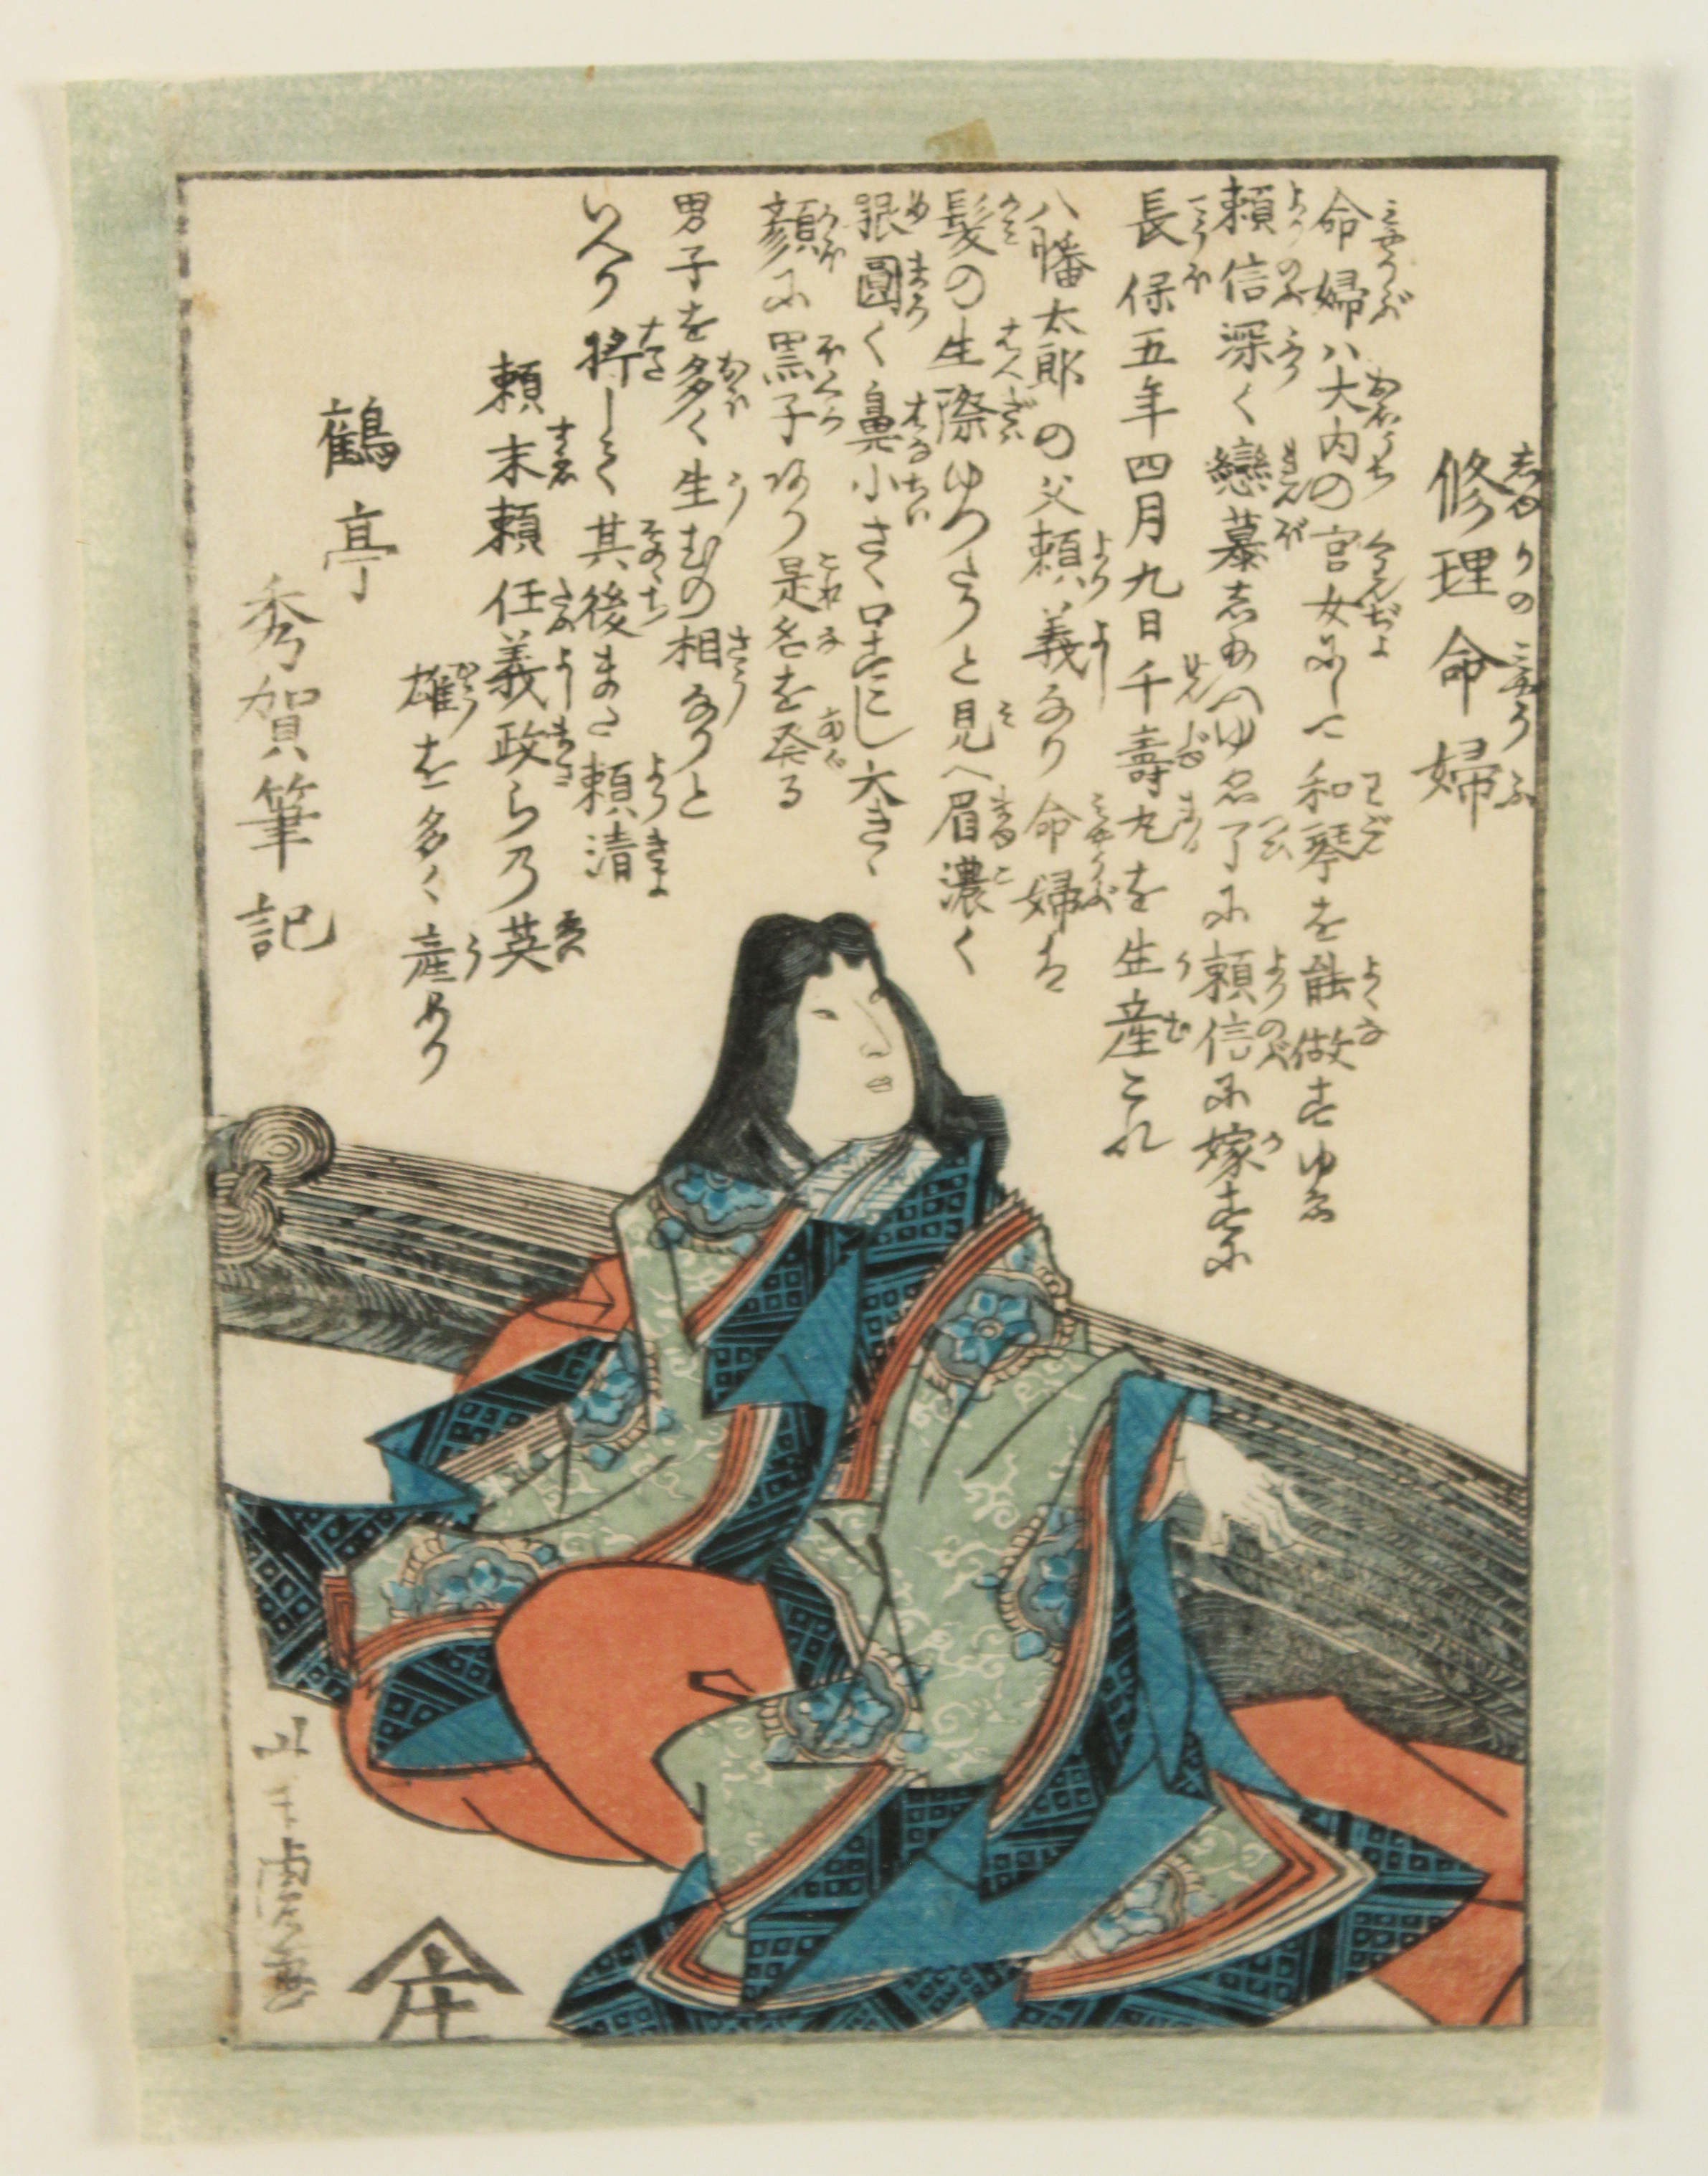 修理命婦
命婦ハ大内の官女にして和琴を能做すゆゑ
頼信深く戀慕したまへゆゑ了に頼信に嫁すに
長保五年四月九日千壽丸を生産これ
八幡太郎の父頼義なり命婦は
髪の生際ゆつたりと見へ眉濃く
眼圓く鼻小さく口たにし大きく
顔に黒子あり是名を発る
男子を多く生むの相なりと
いへり将して其後また頼清
頼末頼任義政らの英
雄を多く産めり
鶴亭
秀賀筆記